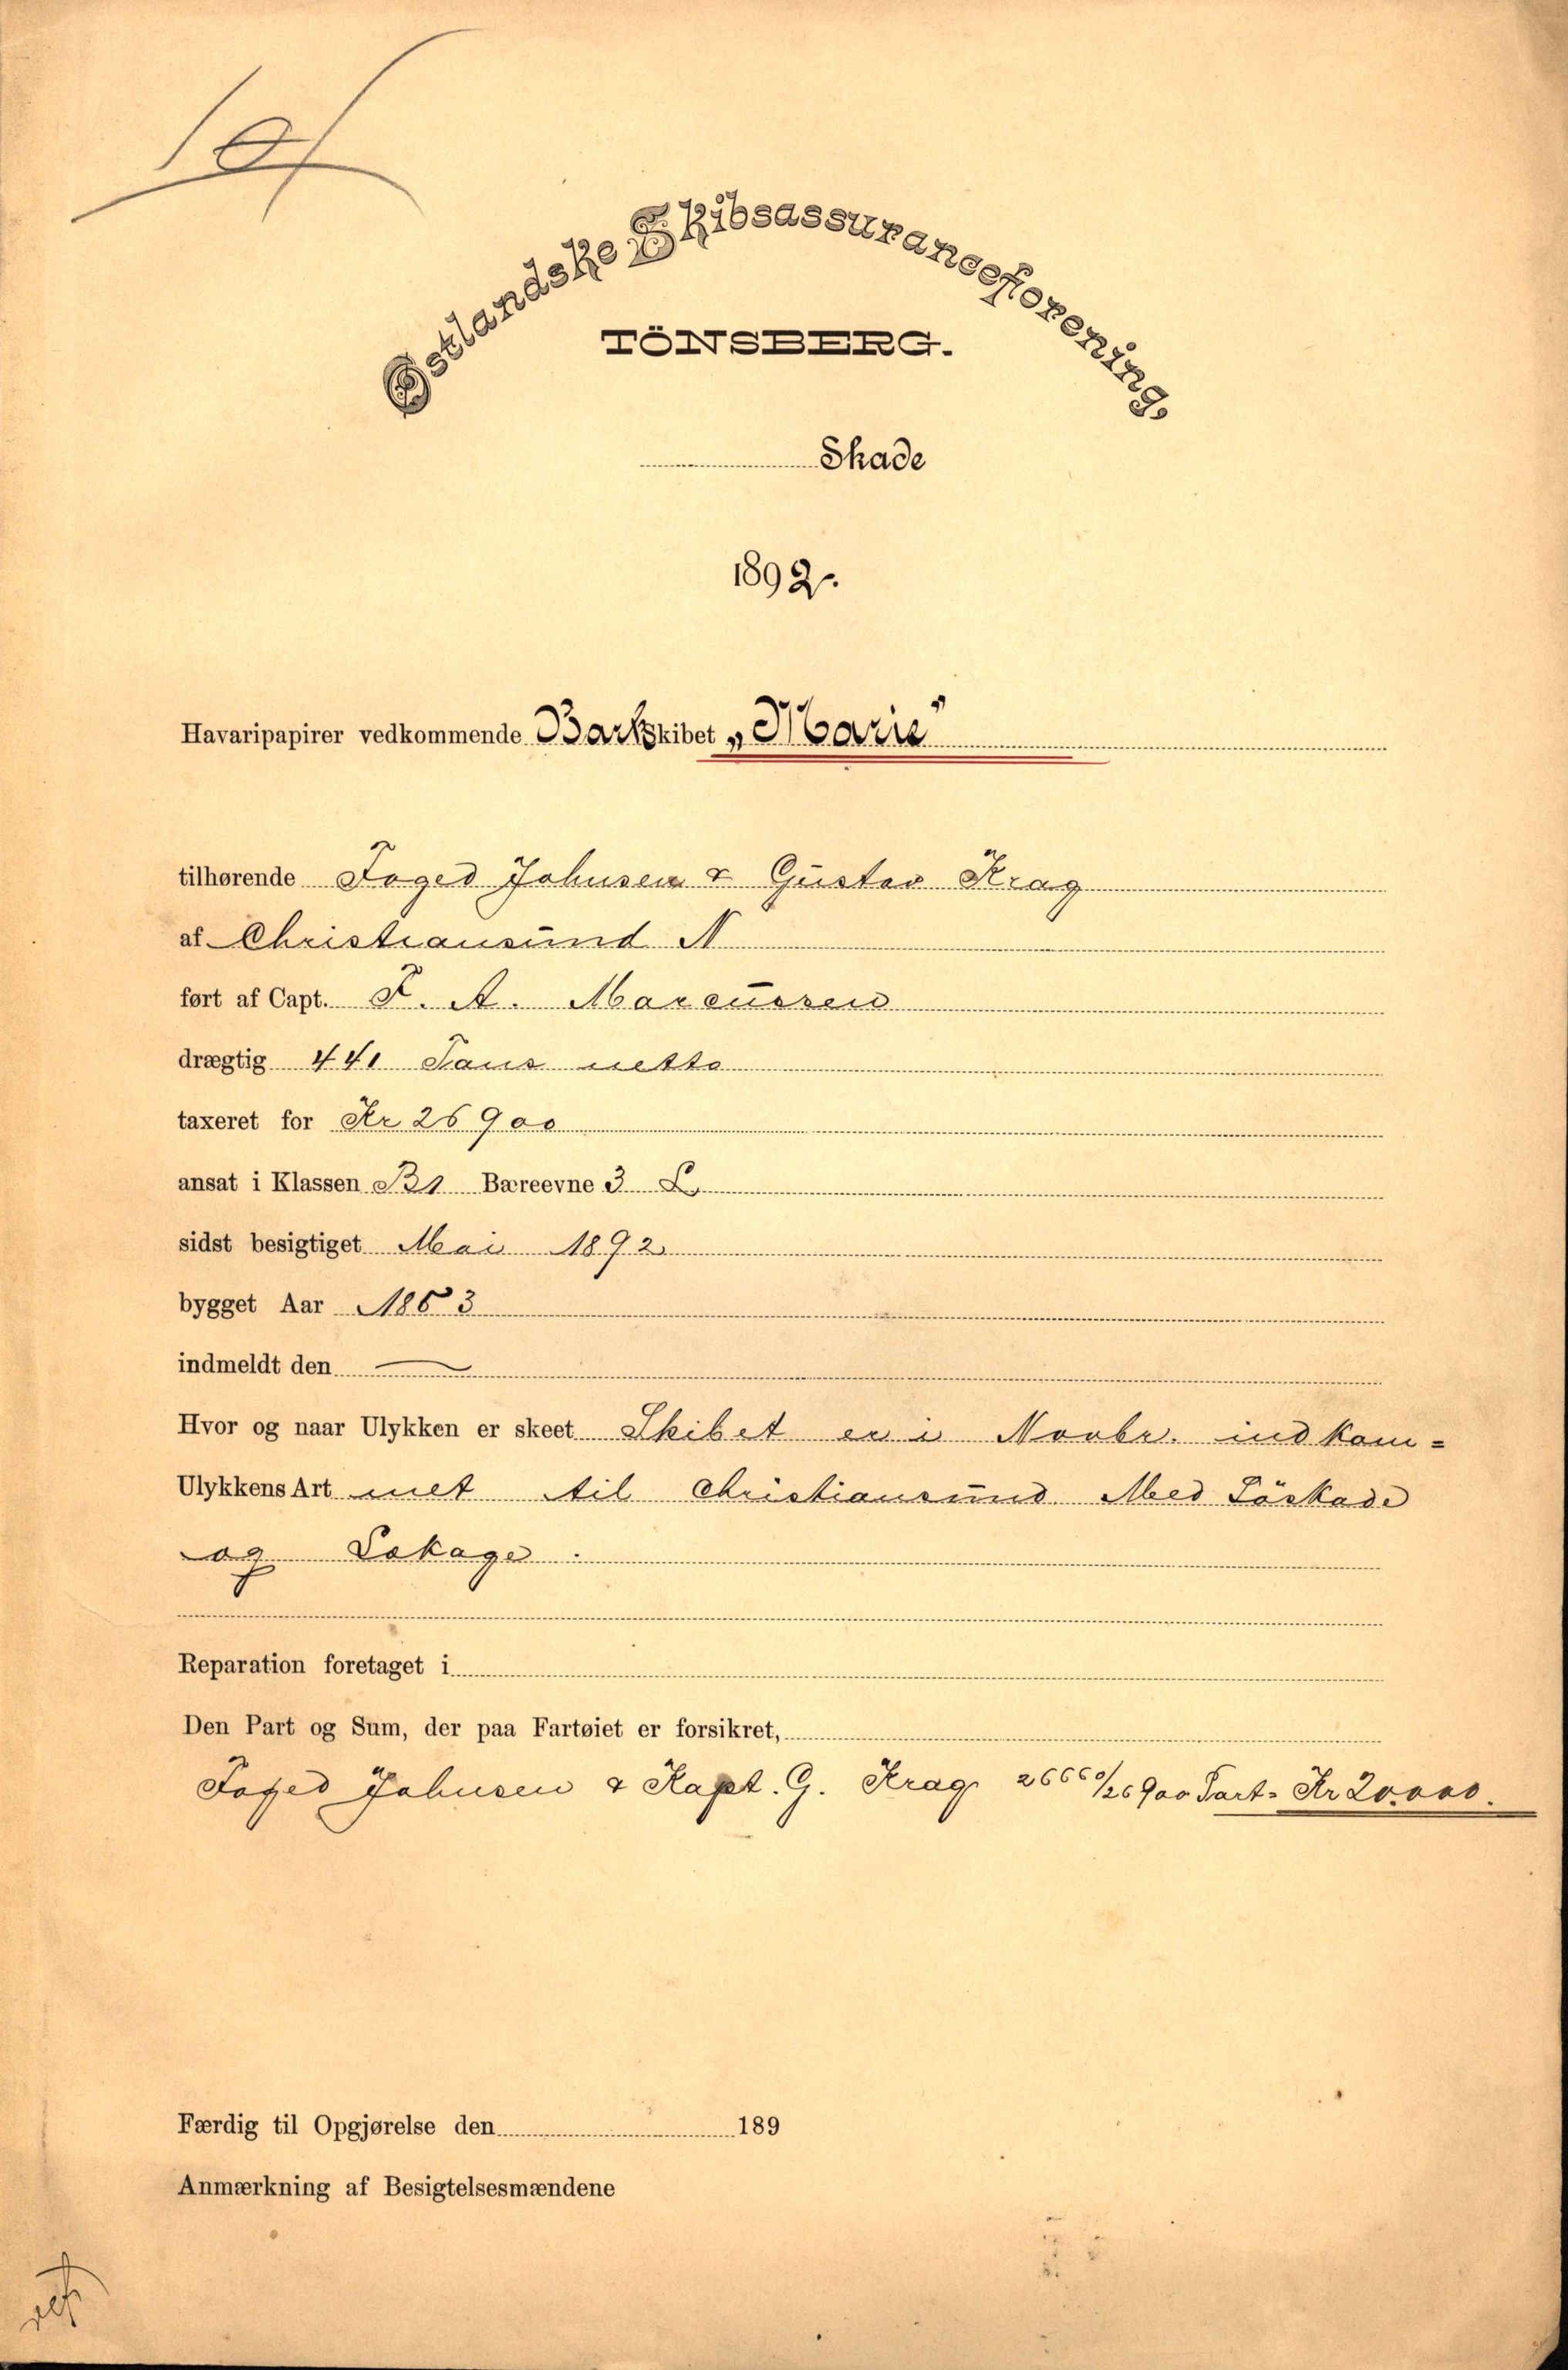 101
Østlandske Skibsassuranceforening,
TÖNSBERG.
Skade
1892.
Havaripapirer vedkommende Barkskibet „Marie"
tilhørende Foged Johnsen & Gustav Krag
af Christiansund N
ført af Capt. F. A. Marcussen
drægtig 441 Tons netto
taxeret for Kr 26900
ansat i Klassen B1 Bæreevne 3 L
sidst besigtiget Mai 1892
bygget Aar 1863
indmeldt den —
Hvor og naar Ulykken er skeet Skibet er i Novbr. indkom=
Ulykkens Art met til Christiansund Med Söskade
og Lækage.
Reparation foretaget i
Den Part og Sum, der paa Fartøiet er forsikret,
Foged Johnsen & Kapt. G. Krag 26660/26900 Part= Kr 20.000.
Færdig til Opgjørelse den 189
Anmærkning af Besigtelsesmændene